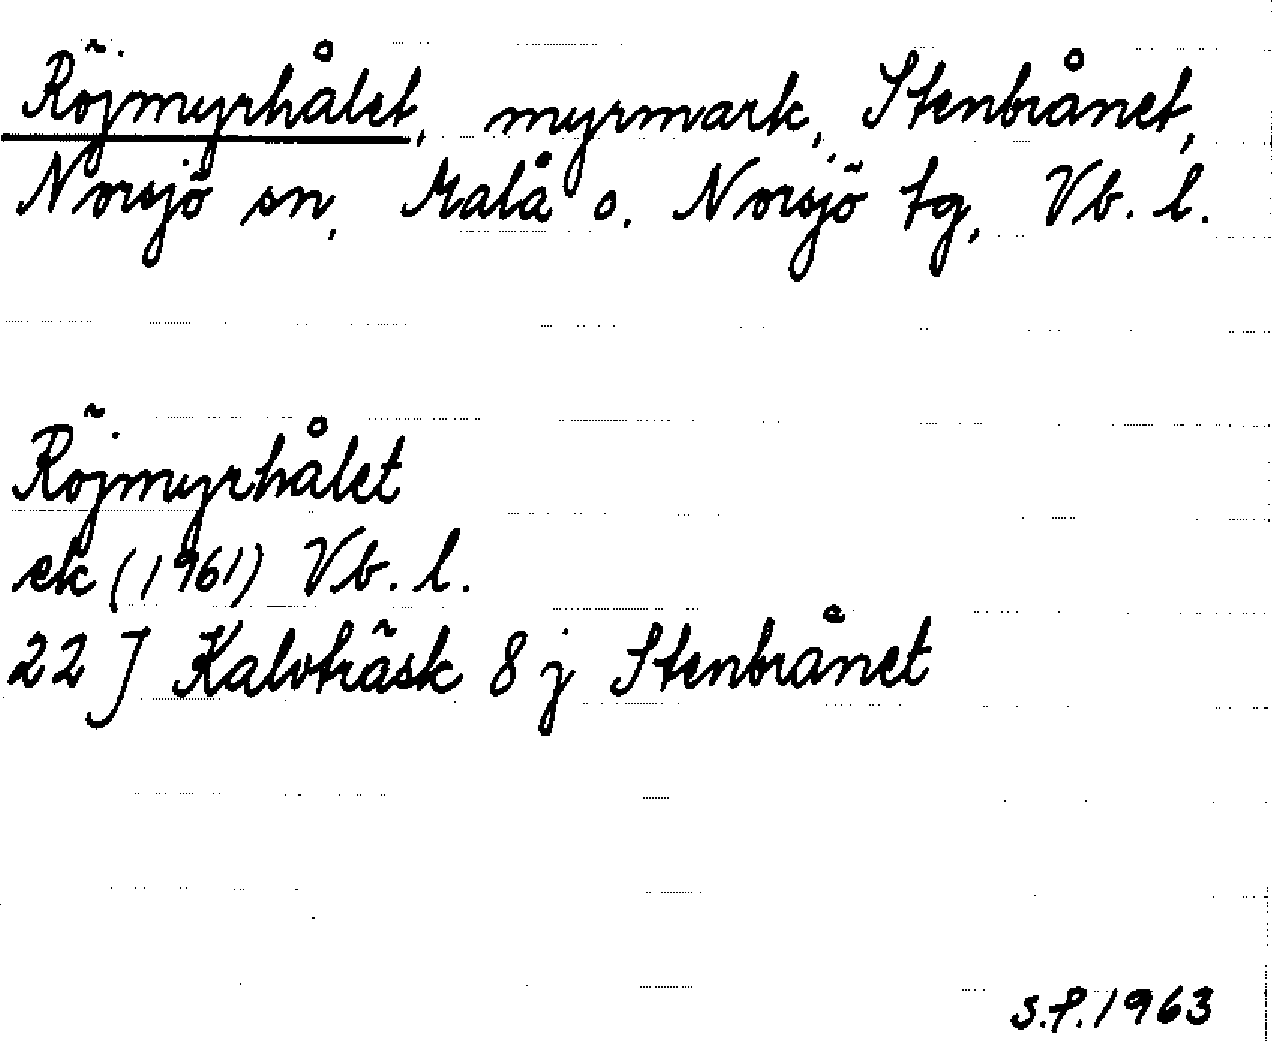 Röjmyrhålet, myrmark, Stenbrånet,
Norsjö sn, Malå o. Norsjö tg, Vb. l.
Röjmyrhålet
ek (1961) Vb. l.
22 J Kalvträsk 8 j Stenbrånet
S.P. 1963